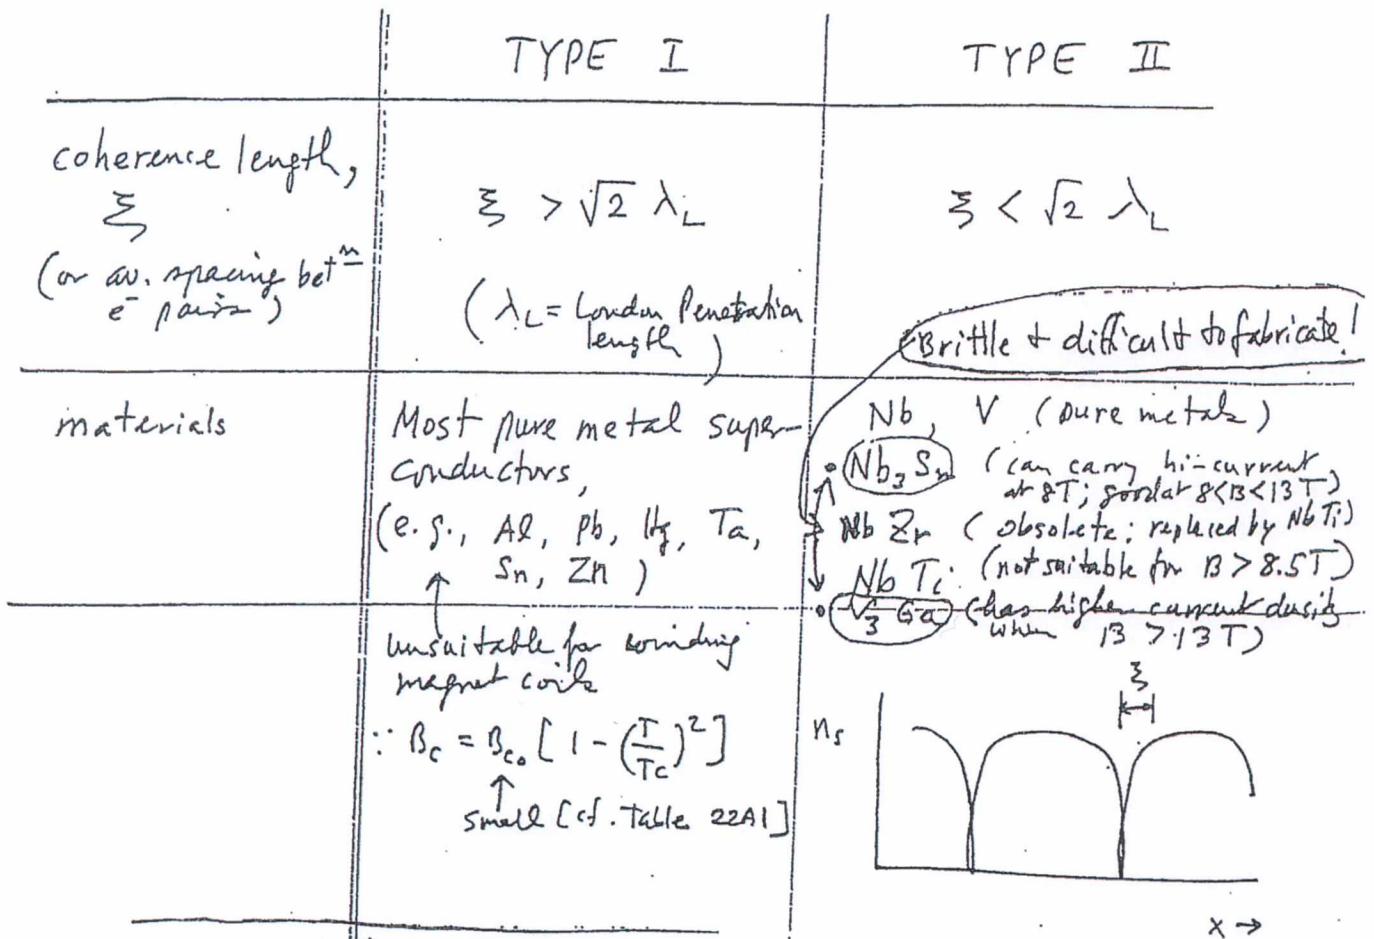 TYPE I
TYPE II
coherence length,
ξ
(or av. spacing bet<sup>n</sup>
e⁻ pairs)
ξ > √2 λ_L
(λ_L = London Penetration
length)
ξ < √2 λ_L
Brittle + difficult to fabricate!
materials
Most pure metal super-
conductors,
(e.g., Al, Pb, Hg, Ta,
Sn, Zn)
unsuitable for winding
magnet coils
∵ B_c = B_c₀ [1 - (T/Tc)²]
small [cf. Table 22A1]
Nb, V (pure metals)
• Nb₃ Sn (can carry hi-current
at 8T; good at 8<B<13T)
Nb Zr (obsolete; replaced by Nb Ti)
Nb Ti (not suitable for B > 8.5T)
• V₃ Ga (has higher current density
when B > 13T)
ξ
n_s
x →